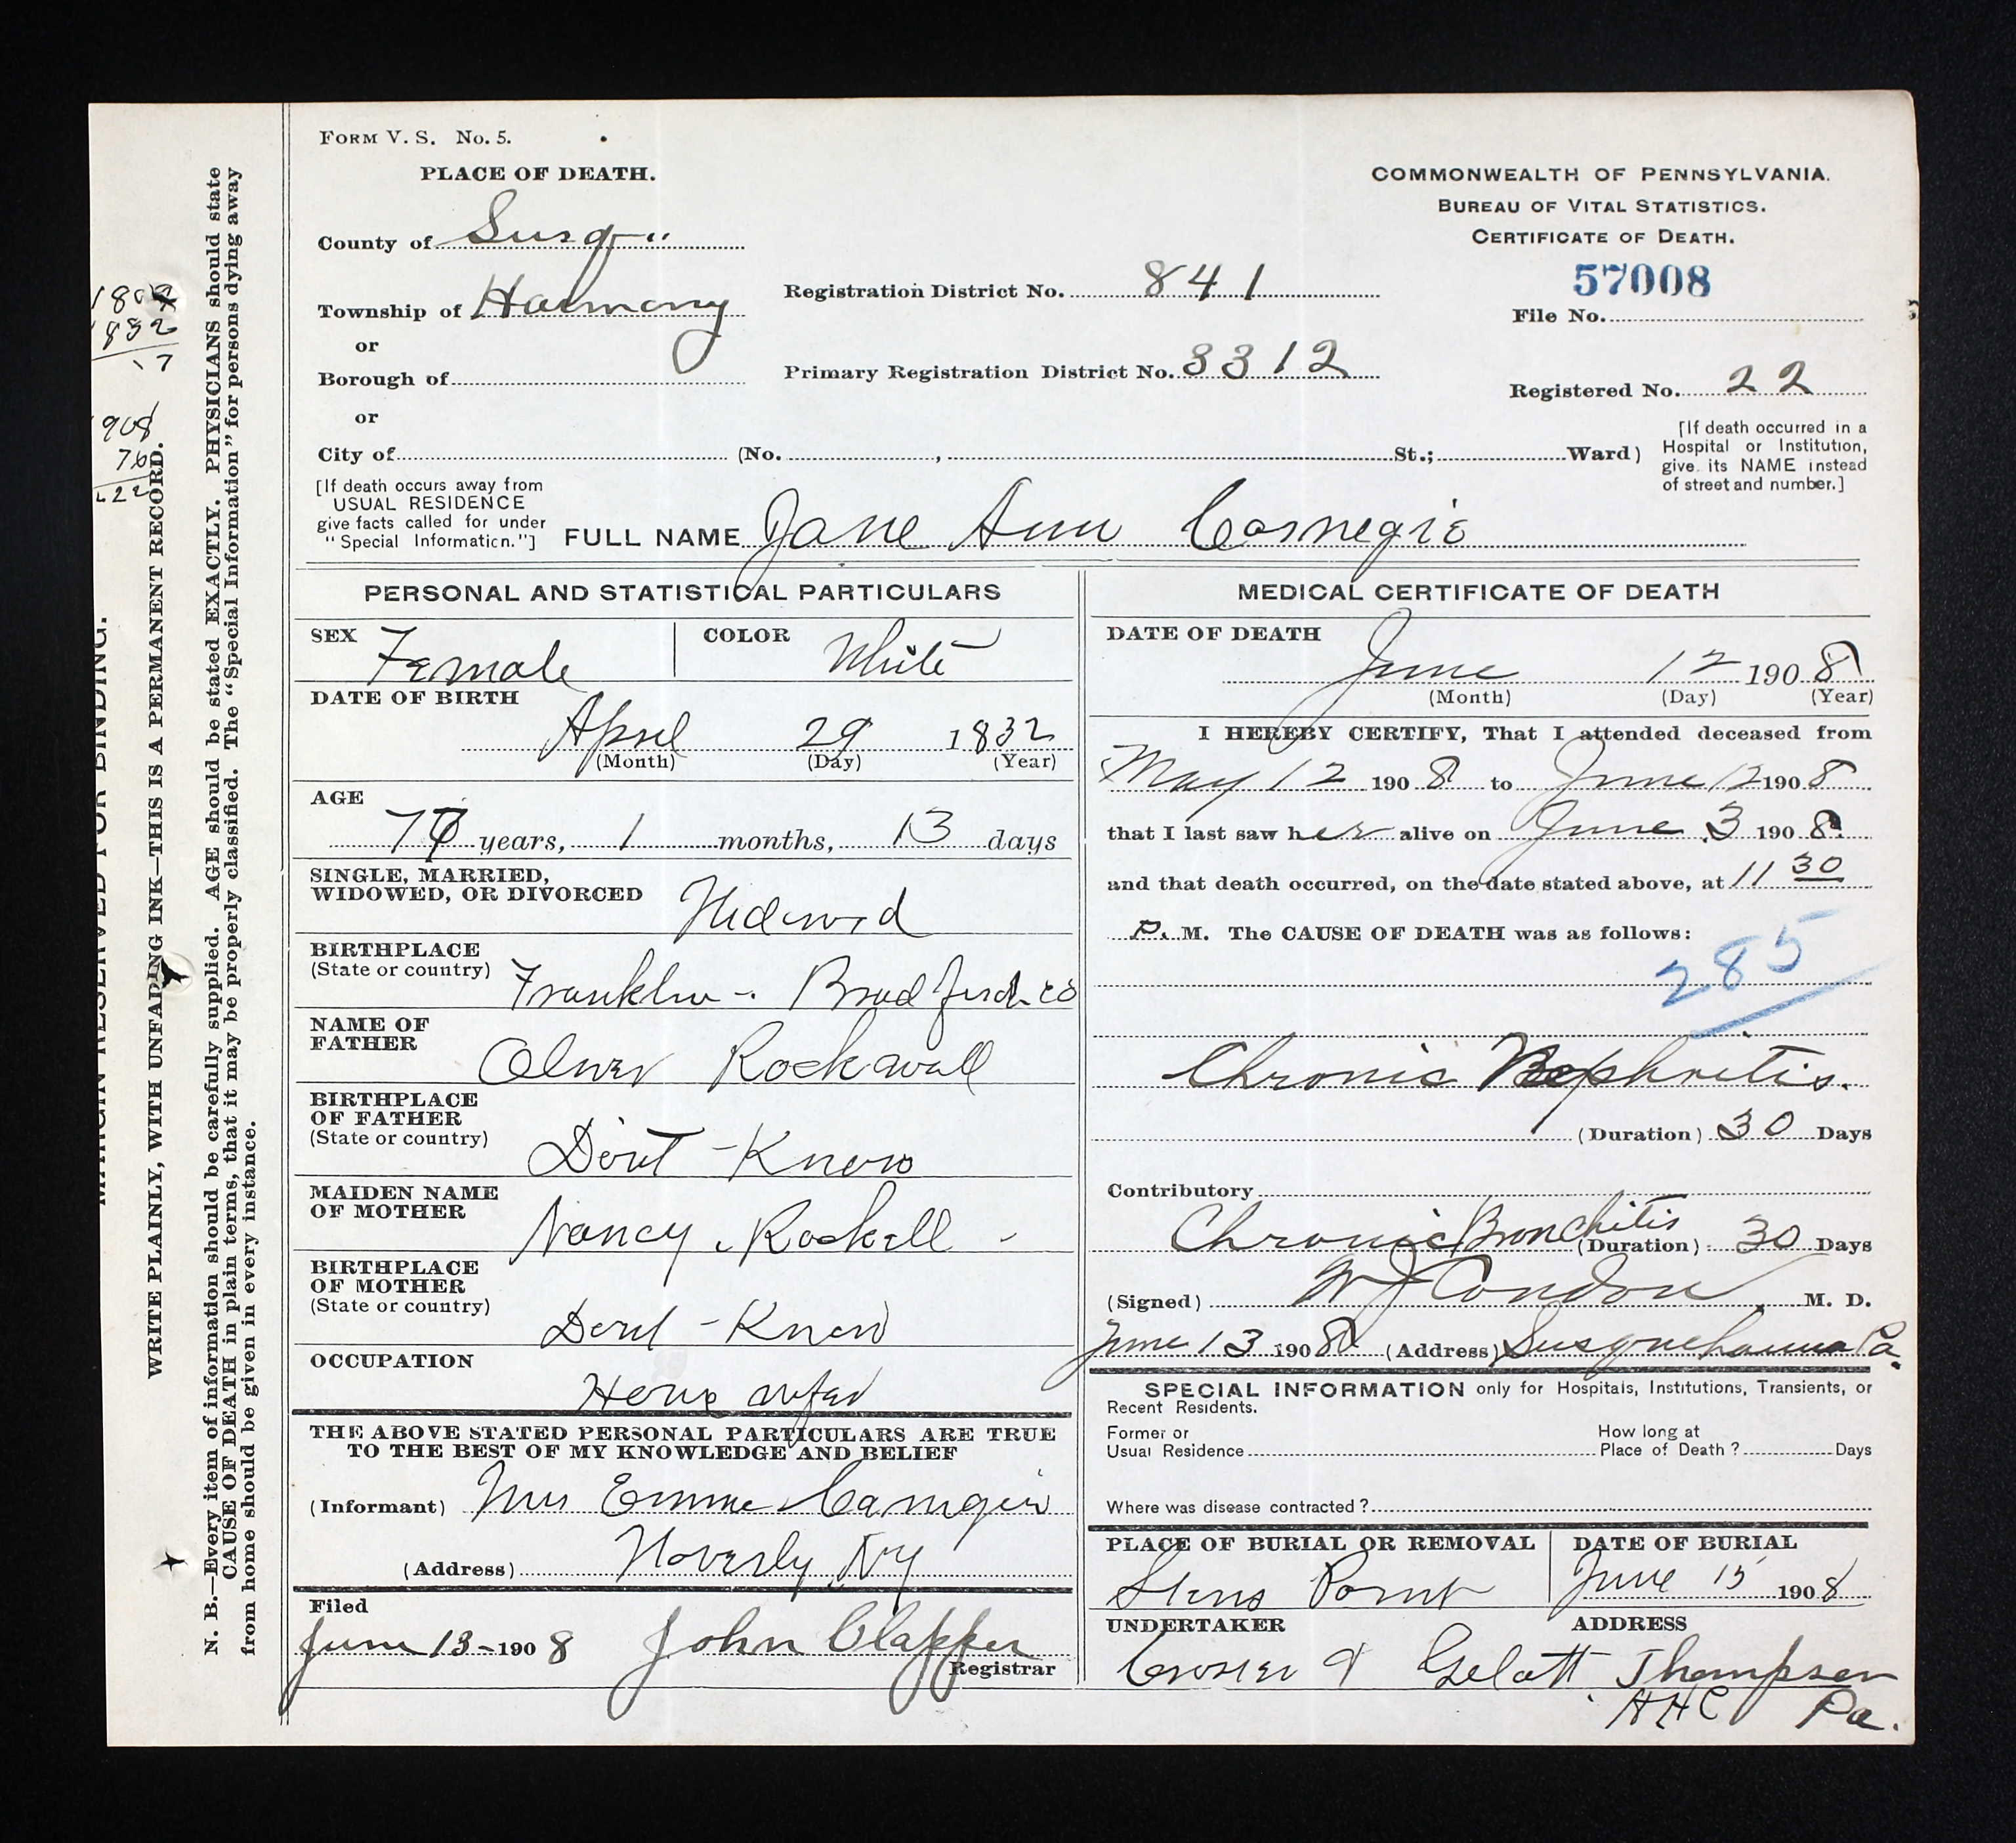 FORM V. S. No. 5.
PLACE OF DEATH.
County of Susq
Township of Harmony
or
Borough of
or
City of (No. , St.; Ward)
[If death occurs away from
USUAL RESIDENCE
give facts called for under
"Special Information."]
COMMONWEALTH OF PENNSYLVANIA.
BUREAU OF VITAL STATISTICS.
CERTIFICATE OF DEATH.
Registration District No. 841
57008
File No.
Primary Registration District No. 3312
Registered No. 22
[If death occurred in a
Hospital or Institution,
give its NAME instead
of street and number.]
FULL NAME Jane Ann Carnegie
PERSONAL AND STATISTICAL PARTICULARS
SEX Female COLOR White
DATE OF BIRTH
April 29 1832
(Month) (Day) (Year)
AGE
years, 1 months, 13 days
SINGLE, MARRIED,
WIDOWED, OR DIVORCED
BIRTHPLACE
(State or country) Franklin - Bradford co
NAME OF
FATHER Oliver Rockwell
BIRTHPLACE
OF FATHER
(State or country) Dont - Know
MAIDEN NAME
OF MOTHER Nancy Rockell
BIRTHPLACE
OF MOTHER
(State or country) Dont - Know
OCCUPATION
THE ABOVE STATED PERSONAL PARTICULARS ARE TRUE
TO THE BEST OF MY KNOWLEDGE AND BELIEF
(Informant) Mrs
(Address) NY
Filed
June 13 - 1908 John Clapper
Registrar
MEDICAL CERTIFICATE OF DEATH
DATE OF DEATH
June 12 1908
(Month) (Day) (Year)
I HEREBY CERTIFY, That I attended deceased from
May 12 1908 to June 12 1908
that I last saw her alive on June 3 1908
and that death occurred, on the date stated above, at 11 30
P. M. The CAUSE OF DEATH was as follows:
285
Chronic Nephritis.
(Duration) 30 Days
Contributory
Chronic Bronchitis (Duration) 30 Days
(Signed) W J Condon M. D.
June 13 1908 (Address) Susquehanna Pa.
SPECIAL INFORMATION only for Hospitals, Institutions, Transients, or
Recent Residents.
Former or
Usual Residence
How long at
Place of Death? Days
Where was disease contracted?
PLACE OF BURIAL OR REMOVAL DATE OF BURIAL
Point June 15 1908
UNDERTAKER ADDRESS
& Gelatt Thompson
Pa.
MARGIN RESERVED FOR BINDING.
WRITE PLAINLY, WITH UNFADING INK—THIS IS A PERMANENT RECORD.
N. B.—Every item of information should be carefully supplied. AGE should be stated EXACTLY. PHYSICIANS should state
CAUSE OF DEATH in plain terms, that it may be properly classified. The "Special Information" for persons dying away
from home should be given in every instance.